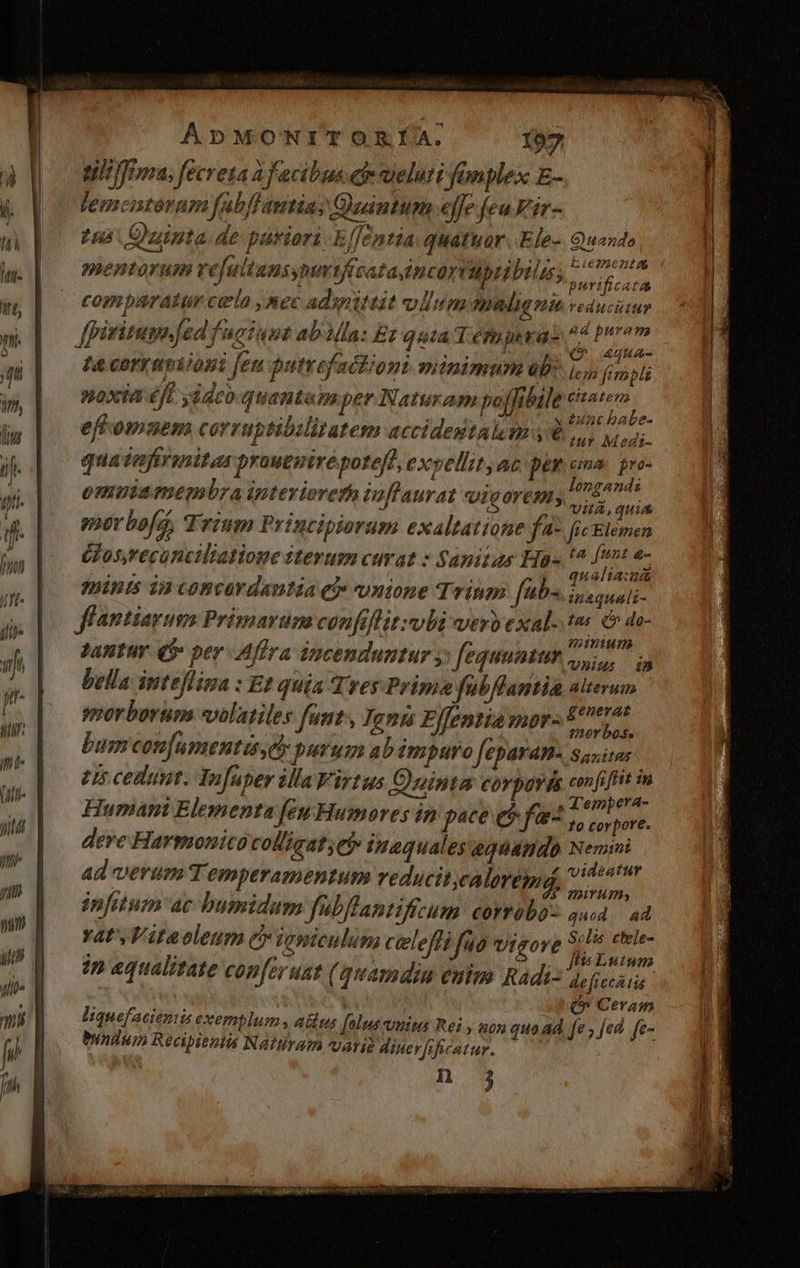 ADMONITORIA. 197
tilissima, secreta à facibus & veluti simplex E-
lementorum substantia; Quintum esse seu Vir-
tus Quinta de puriori Essentia quatuor Ele-
mentorum resultans, purificata, incorruptibilis,
comparatur cælo, nec admittit ullum malignum
spiritum, sed fugiunt ab illa: Et quia Tempera-
ta corruptioni seu putrefactioni minimum ob-
noxia est, ideo quantum per Naturam possibile
est omnem corruptibilitatem accidentalem, è
qua infirmitas prouenire potest, expellit, ac per
omnia membra interiorem instaurat vigorem,
morbosq; Trium Principiorum exaltatione fa-
ctos, reconciliatione iterum curat: Sanitas Ho-
minis in concordantia & unione Trium sub-
stantiarum Primarum consistit: vbi verò exal-
tantur & per Astra incenduntur, sequuntur
bella intestina: Et quia Tres Primæ substantiæ
morborum volatiles sunt, Ignis Essentiæ mor-
bum consumentis, & purum ab impuro separan-
tis cedunt. Insuper illa Virtus Quinta corporis
Humani Elementa seu Humores in pace & fœ-
dere Harmonico colligat, & inæquales æquando
ad verum Temperamentum reducit, caloremq;
insitum ac humidum substantificum corrobo-
rat, Vitæ oleum & igniculum cælesti suo vigore
in æqualitate conseruat (quamdiu enim Radi-
Quando
Elementa
purificata
reducuntur
ad puram
& æqua-
lem simpli
citatem
tunc habe-
tur Medi-
cina pro-
longandi
vitã, quia
sic Elemen
ta sunt æ-
qualia: nã
inæquali-
tas & do-
minium
vnius in
alterum
generat
morbos.
Sanitas
consistit in
Tempera-
to corpore.
Nemini
videatur
mirum,
quod ad
Solis cœle-
stis Lutum
desiccãtis
& Ceram
liquefacientis exemplum, actus solus vnius Rei, non quo ad se, sed se-
cundum Recipientis Naturam variè diuersificatur.
n 3